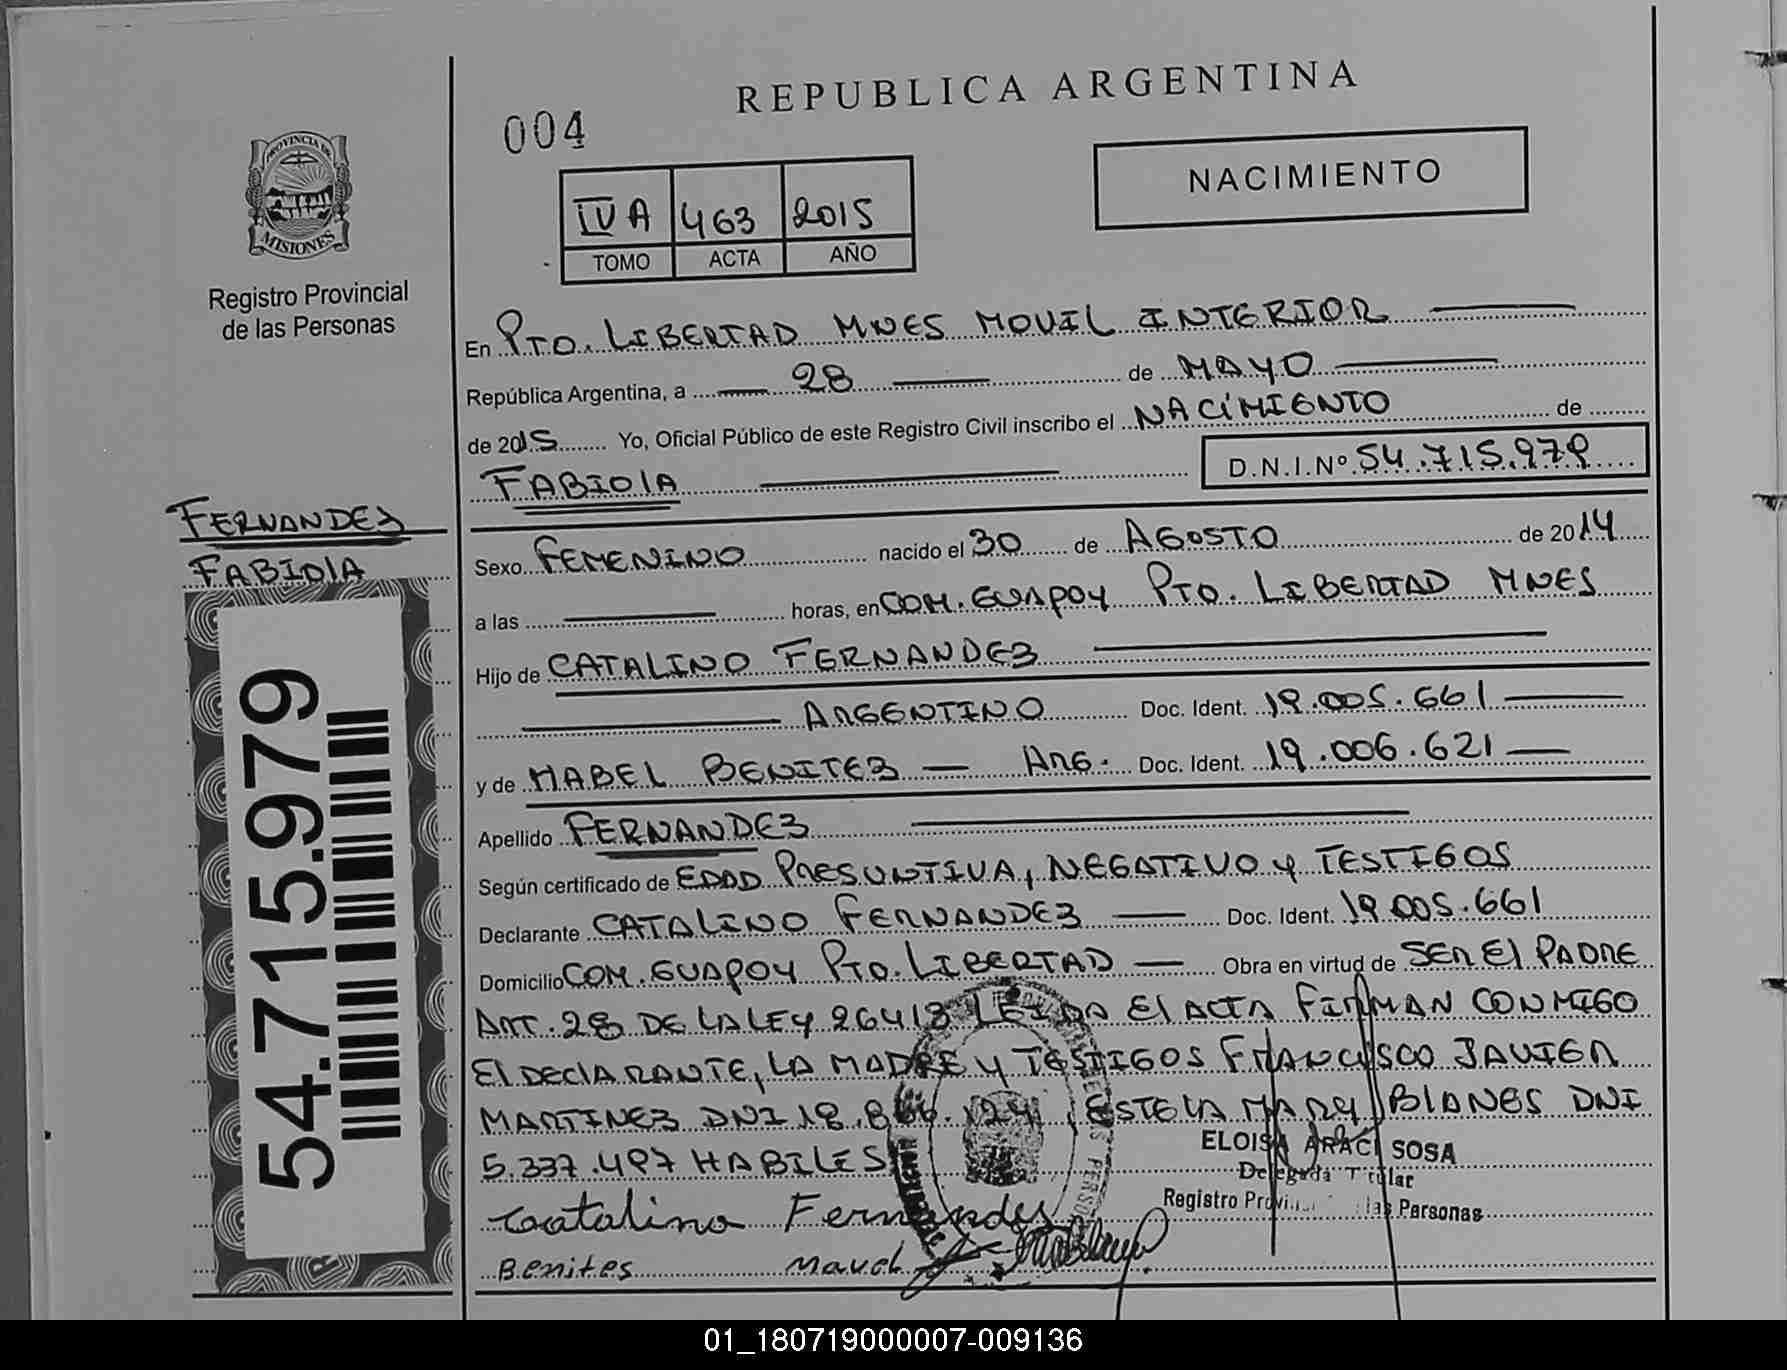 REPUBLICA ARGENTINA
004
NACIMIENTO
IV A 463 2015
TOMO ACTA AÑO
PROVINCIA DE
MISIONES
Registro Provincial
de las Personas
En PTO. LIBERTAD MNES MOVIL INTERIOR
República Argentina, a 28 de MAYO
de 2015 Yo, Oficial Público de este Registro Civil inscribo el NACIMIENTO de
FABIOLA D.N.I.Nº 54.715.979
FERNANDEZ
FABIOLA
54.715.979
Sexo FEMENINO nacido el 30 de AGOSTO de 2014
a las horas, en COM. GUAPOY PTO. LIBERTAD MNES
Hijo de CATALINO FERNANDEZ
ARGENTINO Doc. Ident. 19.005.661
y de MABEL BENITEZ ARG. Doc. Ident. 19.006.621
Apellido FERNANDEZ
Según certificado de EDAD PRESUNTIVA, NEGATIVO Y TESTIGOS
Declarante CATALINO FERNANDEZ Doc. Ident. 19.005.661
Domicilio COM. GUAPOY PTO. LIBERTAD Obra en virtud de SER El PADRE
ART. 28 DE LA LEY 26413 LEIDA El ACTA FIRMAN CONMIGO
El DEClARANTE, LA MADRE Y TESTIGOS FRANCISCO JAVIER
MARTINEZ DNI 18.8 , ESTELA MARY BLANES DNI
5.337.497 HABILES
ELOISA ARACI SOSA
Delegada Titular
Registro Provincial las Personas
Catalino Fernandes
Benites Mavel
01_180719000007-009136